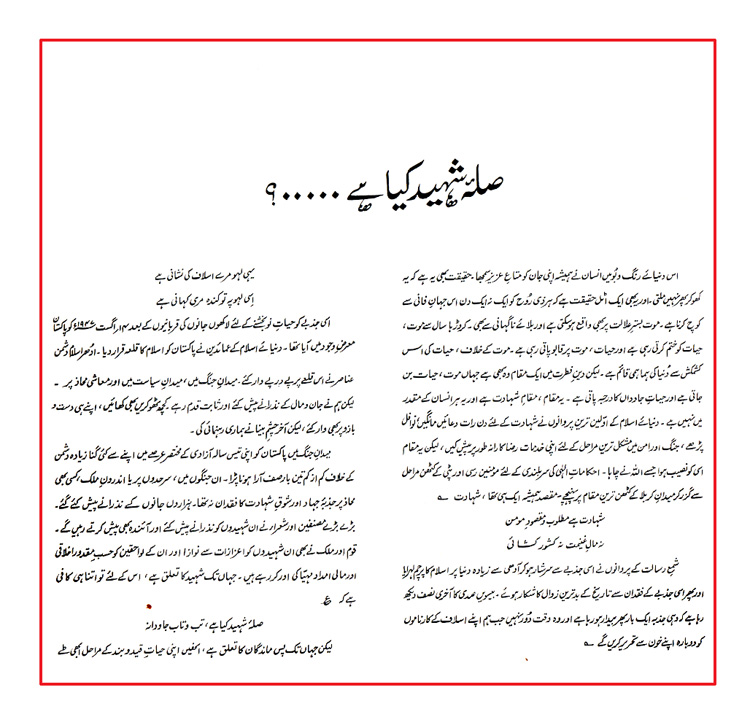 صلۂ شہید کیا ہے ۰۰۰۰۰؟
اس دنیائے رنگ و بُو میں انسان نے ہمیشہ اپنی جان کو متاعِ عزیز سمجھا۔ حقیقت بھی یہ ہے کہ یہ
کھو کر پھر نہیں ملتی۔ اور یہ بھی ایک اٹل حقیقت ہے کہ ہر ذی رُوح کو ایک نہ ایک دن اس جہانِ فانی سے
کوچ کرنا ہے۔ موت بسترِ علالت پر بھی واقع ہو سکتی ہے اور بلائے ناگہانی سے بھی۔ کروڑہا سال سے موت،
حیات کو ختم کرتی رہی ہے اور حیات، موت پر قابو پاتی رہی ہے۔ موت کے خلاف، حیات کی اسی
کشمکش سے دُنیا کی ہما ہمی قائم ہے۔ لیکن دینِ فطرت میں ایک مقام وہ بھی ہے جہاں موت، حیات بن
جاتی ہے اور حیاتِ جاوداں کا درجہ پاتی ہے۔ یہ مقام، مقامِ شہادت ہے اور یہ ہر انسان کے مقدر
میں نہیں ہے۔ دنیائے اسلام کے اوّلین ترین پروانوں نے شہادت کے لئے دن رات دعائیں مانگیں، نوافل
پڑھے، جنگ اور امن میں مشکل ترین مراحل کے لئے اپنی خدمات رضاکارانہ طور پر پیش کیں، لیکن یہ مقام
اسی کو نصیب ہوا جسے اللہ نے چاہا۔ احکاماتِ الٰہی کی سربلندی کے لئے مؤمنین رسی اور پٹی کے کٹھن مراحل
سے گزر کر میدانِ کربلا کے کٹھن ترین مقام پر پہنچے۔ مقصد ہمیشہ ایک ہی تھا، شہادت ؎
شہادت ہے مطلوب و مقصودِ مومن
نہ مالِ غنیمت نہ کشور کشائی
شمعِ رسالت کے پروانوں نے اسی جذبے سے سرشار ہو کر آدھی سے زیادہ دنیا پر اسلام کا پرچم لہرایا
اور پھر اسی جذبے کے فقدان سے تاریخ کے بدترین زوال کا شکار ہوئے۔ بیسویں صدی کا آخری نصف دیکھ
رہا ہے کہ وہی جذبہ ایک بار پھر بیدار ہو رہا ہے اور وہ وقت دُور نہیں جب ہم اپنے اسلاف کے کارناموں
کو دوبارہ اپنے خون سے تحریر کریں گے ؎
یہی لہو مرے اسلاف کی نشانی ہے
اِسی لہو پہ تو کندہ مری کہانی ہے
اسی جذبے کو حیاتِ نو بخشنے کے لئے لاکھوں جانوں کی قربانیوں کے بعد ۱۴ اگست ۱۹۴۷ء کو پاکستان
معرضِ وجود میں آیا تھا۔ دنیائے اسلام کے عمائدین نے پاکستان کو اسلام کا قلعہ قرار دیا۔ ادھر اسلام دشمن
عناصر نے اس قلعے پر پے در پے وار کئے۔ میدانِ جنگ میں، میدانِ سیاست میں اور معاشی محاذ پر ۔
لیکن ہم نے جان و مال کے نذرانے پیش کئے اور ثابت قدم رہے۔ کچھ ٹھوکریں بھی کھائیں، اپنے ہی دست و
بازو پر بھی وار کئے، لیکن آخر چشمِ بینا نے ہماری رہنمائی کی۔
میدانِ جنگ میں پاکستان کو اپنی تیس سالہ آزادی کے مختصر عرصے میں اپنے سے کئی گنا زیادہ دشمن
کے خلاف کم از کم تین بار صف آرا ہونا پڑا۔ ان جنگوں میں، سرحدوں پر یا اندرونِ ملک، کسی بھی
محاذ پر جذبۂ جہاد اور شوقِ شہادت کا فقدان نہ تھا۔ ہزاروں جانوں کے نذرانے پیش کئے گئے۔
بڑے بڑے مصنفین اور شعراء نے ان شہیدوں کو نذرانے پیش کئے اور آئندہ بھی پیش کرتے رہیں گے۔
قوم اور ملک نے بھی ان شہیدوں کو اعزازات سے نوازا اور ان کے لواحقین کو حسبِ مقدور اخلاقی
اور مالی امداد مہیا کی اور کر رہے ہیں۔ جہاں تک شہید کا تعلق ہے، اس کے لئے تو اتنا ہی کافی
ہے کہ ؏
صلۂ شہید کیا ہے، تب و تابِ جاودانہ
لیکن جہاں تک پس ماندگان کا تعلق ہے، انھیں اپنی حیاتِ قید و بند کے مراحل بھی طے